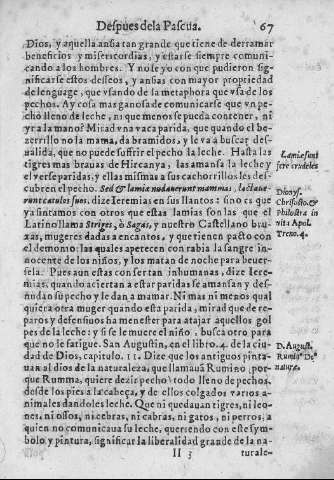 Despues dela Pascua. 67
Dios, y aquella ansia tan grande que tiene de derramar
beneficios y misericordias, y estarse siempre comuni-
cando a los hombres. Y no se yo con que pudieron sig-
nificarse estos desseos, y ansias con mayor propriedad
de lenguage, que vsando de la metaphora que vsa de los
pechos. Ay cosa mas ganosa de comunicarse que vn pe-
cho lleno de leche, ni que menos se pueda contener, ni
yr a la mano? Mirad vna vaca parida, que quando el be-
zerrillo no la mama, da bramidos, y le va a buscar des-
ualida, que no puede suffrir el pecho la leche. Hasta las
tigres mas brauas de Hircanya, las amansa la leche y
el verse paridas, y ellas mismas a sus cachorrillos les des-
cubren el pecho. Sed & lamiæ nudauerunt mammas, lactaue-
runt catulos suos. dize Ieremias en sus llantos: sino es que
ya sintamos con otros que estas lamias son las que el
Latino llama Striges, ò Sagas, y nuestro Castellano bru-
xas, mugeres dadas a encantos, y que tienen pacto con
el demonio: las quales apetecen con rabia la sangre in-
nocente de los niños, y los matan de noche para beuer-
sela. Pues aun estas con ser tan inhumanas, dize Iere-
mias, quando aciertan a estar paridas se amansan y des-
nudan su pecho y le dan a mamar. Ni mas ni menos qual
quiera otra muger quando esta parida, mirad que de re-
paros y defensiuos ha menester para atajar aquellos gol-
pes de la leche: y si se le muere el niño, busca otro para
que no le fatigue. San Augustin, en el libro. 4. de la ciudad
de Dios, capitulo. 11. Dize que los antiguos pinta-
uan al dios de la naturaleza, que llamauã Rumino, por-
que Rumma, quiere dezir pecho: todo lleno de pechos,
desde los pies a la cabeça, y de ellos colgados varios a-
nimales dandoles leche. Que ni quedauan tigres, ni leo-
nes, ni ossos, ni cebras, ni cabras, ni gatos, ni perros, a
quien no comunicaua su leche, queriendo con este sym-
bolo y pintura, significar la liberalidad grande de la na-
II 3 turale-
Lamiæ sunt
feræ crudeles
Dionys.
Chrisosto. &
philostra. in
vita Apol.
Treno. 4.
D. August.
Rumin⁹ De⁹
naturæ.